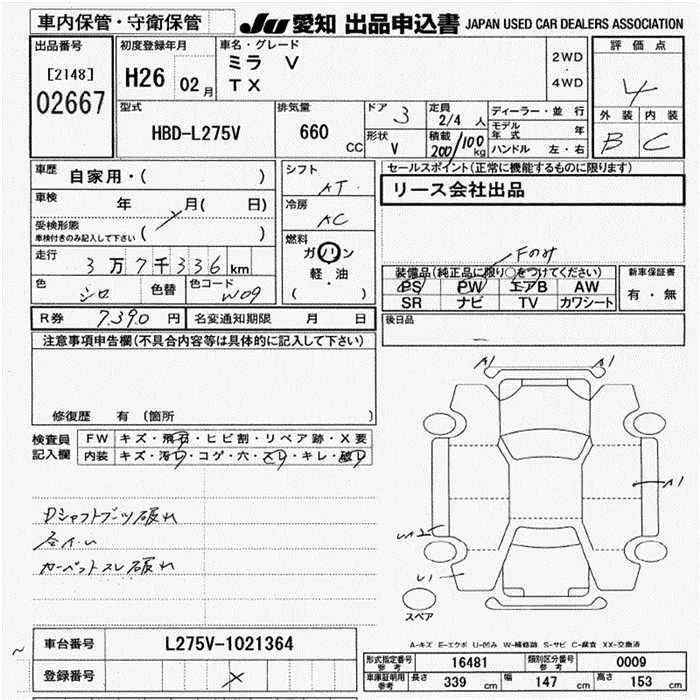 車内保管・守衛保管
JU 愛知 出品申込書 JAPAN USED CAR DEALERS ASSOCIATION
出品番号
[2148]
02667
初度登録年月
H26 02月
車名・グレード
ミラ V
TX
2WD
・
4WD
評価点
4
外装 内装
B C
型式
HBD-L275V
排気量
660 CC
ドア 3
形状 V
定員
2/4 人
積載
200/100 kg
ディーラー・並行
モデル年式 年
ハンドル 左・右
車歴
自家用・( )
車検 年 月( 日)
受検形態
車検付きのみ記入して下さい ( )
走行
3万7千336km
色 シロ 色替 色コード W09
シフト
AT
冷房
AC
燃料
ガソリン
軽・油
( )
セールスポイント(正常に機能するものに限ります)
リース会社出品
Fのみ
装備品(純正品に限り○をつけてください)
PS PW エアB AW
SR ナビ TV カワシート
新車保証書
有・無
R券 7,390円 名変通知期限 月 日
後日品
注意事項申告欄(不具合内容等は具体的に記入して下さい)
修復歴 有 〔箇所 〕
検査員記入欄
FW キズ・飛石・ヒビ割・リペア跡・X要
内装 キズ・汚レ・コゲ・穴・スレ・キレ・破レ
Dシャフトブーツ破れ
カーペットスレ破れ
A1 A1
A1
U1
スペア
A-キズ E-エクボ U-凹み W-補修跡 S-サビ C-腐食 XX-交換済
車台番号 L275V-1021364
登録番号
形式指定番号 参考 16481 類別区分番号 参考 0009
車庫証明用 参考 長さ 339 cm 幅 147 cm 高さ 153 cm